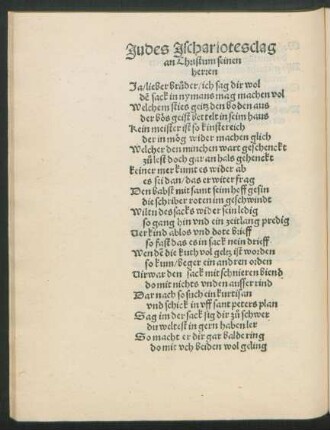 Judes Ischariotes clag
an Christum seinen
herren
Ja/lieber brůder/ich sag dir wol
dē sack in nymans mag machen vol
Welchem sties geitz den boden aus
der bös geist bettelt in seim haus
Kein meister ist so kinstereich
der in mög wider machen glich
Welcher den minchen wart geschenckt
zů lest doch gar an hals gehenckt
keiner mer kunt es wider ab
es sei dan/das er witer frag
Den babst mit samt seim heff gesin
die schriber roten im geschwindt
Wilt en des sacks wider sein ledig
so gang hin vnd ein zeitlang predig
Verkind ablos vnd dote brieff
so fast das es in sack nein drieff
Wen dē die kuth vol geltz ist worden
so kum/beger ein andren orden
Vir war den sack mit schnieren biend
do mit nichts vnden ausser rind
Dar nach so such ein kurtisan
vnd schick in vff sant peters plan
Sag im der sack sig dir zů schwer
du weltest in gern haben ler
So macht er dir gar balde ring
do mit vch beiden wol geling